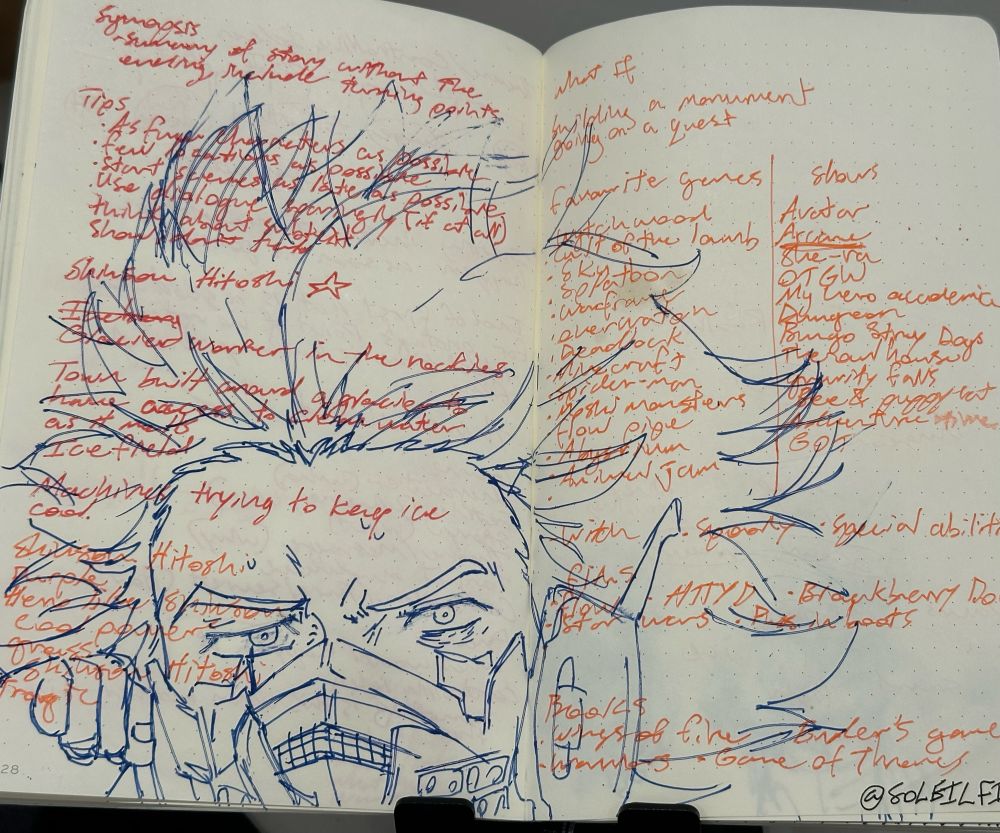 Synopsis
-summary of story without the
ending include turning points
Tips
• As few characters as possible
• few locations as possible
• Start scenes as late as possible
Use dialogue sparingly (if at all)
think about
Show don't
Shinsou Hitoshi ☆
Glacier worker in the rockies
Town built around a glacier to
have access to clean water
as it melts
Icefield
Machines trying to keep ice
cool
Shinsou Hitoshi
Purple
Hero
Shinsou Hitoshi
28
what if
building a monument
going on a quest
favourite games
Cult of the lamb
• Splatoon
• warframe
• overwatch
• Deadlock
• minecraft
• spider-man
• moshi monsters
• flow
• animal jam
shows
Avatar
Arcane
She-ra
OTGW
My hero academia
Dungeon
Bungo Stray Days
The owl house
Gravity falls
Adventure time
GOT
• spooky • special abiliti
films
• flow • HTTYD
• Star wars • Puss in boots
Books
• wings of fire Ender's game
• Game of Thrones
@SOLEILFI